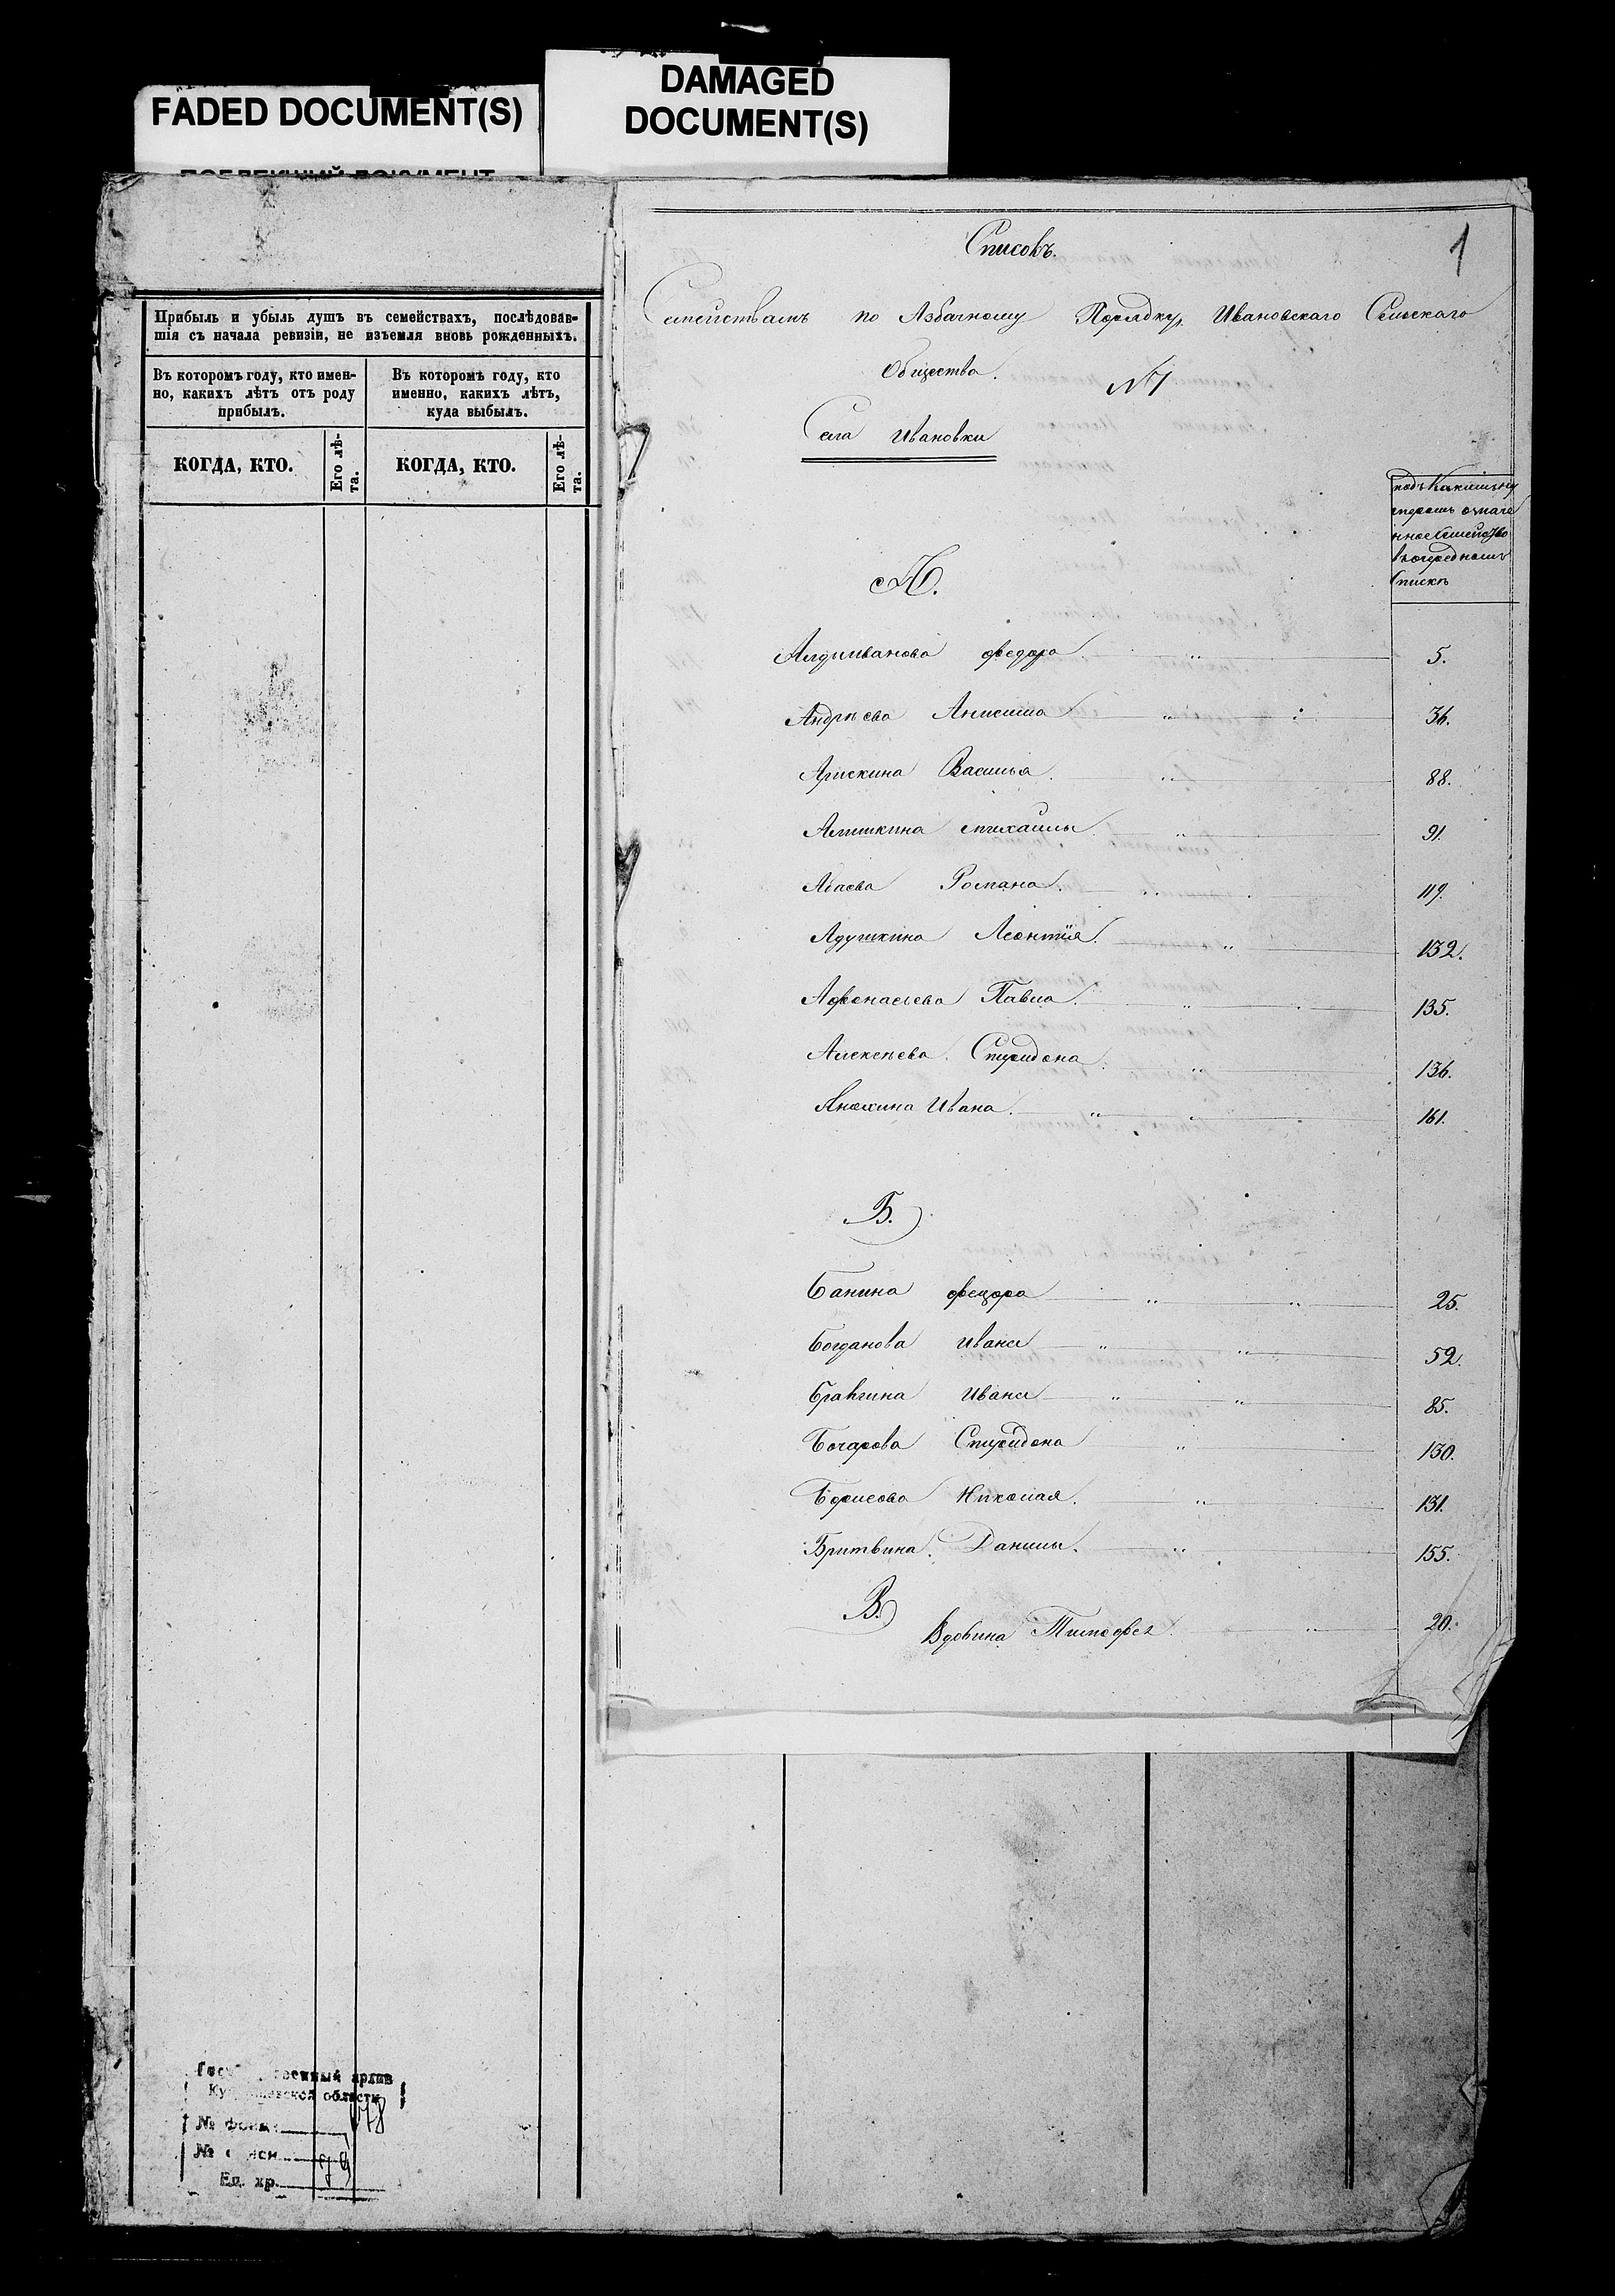 FADED DOCUMENT(S)
DAMAGED
DOCUMENT(S)
Прибыль и убыль душъ въ семействахъ, послѣдовав-
шія съ начала ревизіи, не изъемля вновь рожденныхъ.
Въ которомъ году, кто имен-
но, какихъ лѣтъ отъ роду
прибылъ.
Въ которомъ году, кто
именно, какихъ лѣтъ,
куда выбылъ.
КОГДА, КТО.
Его лѣ-
та.
КОГДА, КТО.
Его лѣ-
та.
1
Списокъ.
Семействамъ по Азбачному Порядку, Ивановскаго Сельскаго
Общества.
№ 1
Села Ивановки
подъ Какимъ ну
меромъ означе
нное Семейство
въ очередномъ
Спискѣ
А.
федора 5.
Андрѣева Анисима 36.
Василья 88.
Алишкина Михайлы 91.
Абаева Романа 119.
Адушкина Леонтія 132.
Афонасьева Павла 135.
Алексѣева Спиридона 136.
Анохина Ивана 161.
Б.
Банина федора 25.
Богданова Ивана 52.
Ивана 85.
Бочарова Спиридона 130.
Борисова Николая 131.
Бритвина Данилы 155.
В.
Вдовина Тимофея 20.
архив
области
№
№
Ед. хр.